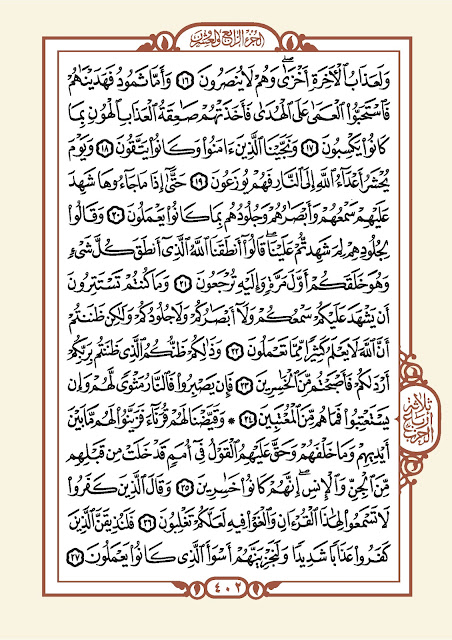 الجزء الرابع والعشرون
وَلَعَذَابُ ٱلْأَخِرَةِ أَخْزَىٰۖ وَهُمْ لَا يُنصَرُونَ ١٦ وَأَمَّا ثَمُودُ فَهَدَيْنَٰهُمْ
فَٱسْتَحَبُّوا۟ ٱلْعَمَىٰ عَلَى ٱلْهُدَىٰ فَأَخَذَتْهُمْ صَٰعِقَةُ ٱلْعَذَابِ ٱلْهُونِ بِمَا
كَانُوا۟ يَكْسِبُونَ ١٧ وَنَجَّيْنَا ٱلَّذِينَ ءَامَنُوا۟ وَكَانُوا۟ يَتَّقُونَ ١٨ وَيَوْمَ
يُحْشَرُ أَعْدَآءُ ٱللَّهِ إِلَى ٱلنَّارِ فَهُمْ يُوزَعُونَ ١٩ حَتَّىٰٓ إِذَا مَا جَآءُوهَا شَهِدَ
عَلَيْهِمْ سَمْعُهُمْ وَأَبْصَٰرُهُمْ وَجُلُودُهُم بِمَا كَانُوا۟ يَعْمَلُونَ ٢٠ وَقَالُوا۟
لِجُلُودِهِمْ لِمَ شَهِدتُّمْ عَلَيْنَاۖ قَالُوٓا۟ أَنطَقَنَا ٱللَّهُ ٱلَّذِىٓ أَنطَقَ كُلَّ شَىْءٍ
وَهُوَ خَلَقَكُمْ أَوَّلَ مَرَّةٍ وَإِلَيْهِ تُرْجَعُونَ ٢١ وَمَا كُنتُمْ تَسْتَتِرُونَ
أَن يَشْهَدَ عَلَيْكُمْ سَمْعُكُمْ وَلَآ أَبْصَٰرُكُمْ وَلَا جُلُودُكُمْ وَلَٰكِن ظَنَنتُمْ
أَنَّ ٱللَّهَ لَا يَعْلَمُ كَثِيرًا مِّمَّا تَعْمَلُونَ ٢٢ وَذَٰلِكُمْ ظَنُّكُمُ ٱلَّذِى ظَنَنتُم بِرَبِّكُمْ
أَرْدَىٰكُمْ فَأَصْبَحْتُم مِّنَ ٱلْخَٰسِرِينَ ٢٣ فَإِن يَصْبِرُوا۟ فَٱلنَّارُ مَثْوًى لَّهُمْۖ وَإِن
يَسْتَعْتِبُوا۟ فَمَا هُم مِّنَ ٱلْمُعْتَبِينَ ٢٤ ۞ وَقَيَّضْنَا لَهُمْ قُرَنَآءَ فَزَيَّنُوا۟ لَهُم مَّا بَيْنَ
أَيْدِيهِمْ وَمَا خَلْفَهُمْ وَحَقَّ عَلَيْهِمُ ٱلْقَوْلُ فِىٓ أُمَمٍ قَدْ خَلَتْ مِن قَبْلِهِم
مِّنَ ٱلْجِنِّ وَٱلْإِنسِۖ إِنَّهُمْ كَانُوا۟ خَٰسِرِينَ ٢٥ وَقَالَ ٱلَّذِينَ كَفَرُوا۟
لَا تَسْمَعُوا۟ لِهَٰذَا ٱلْقُرْءَانِ وَٱلْغَوْا۟ فِيهِ لَعَلَّكُمْ تَغْلِبُونَ ٢٦ فَلَنُذِيقَنَّ ٱلَّذِينَ
كَفَرُوا۟ عَذَابًا شَدِيدًا وَلَنَجْزِيَنَّهُمْ أَسْوَأَ ٱلَّذِى كَانُوا۟ يَعْمَلُونَ ٢٧
ثلاثة
أرباع
الحزب
٤٠٢